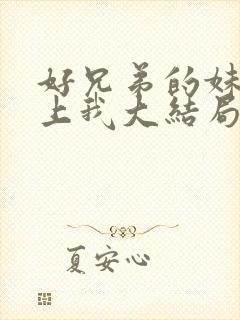 好兄弟的妹
上我大结局
夏安心